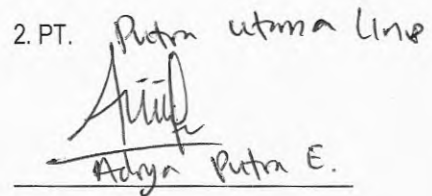 2. PT. Putra utama Line
Aditya Putra E.